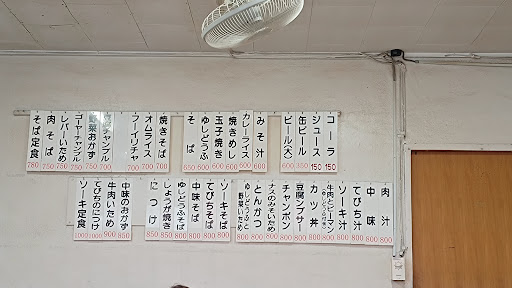 コーラ 150
ジュース 150
缶ビール 350
ビール(大) 600
みそ汁 600
カレーライス 600
焼きめし 600
玉子焼き 600
ゆしどうふ 650
そば 650
焼きそば 700
オムライス 700
フーイリチャ 700
ゴーヤーチャンプル 750
レバーいため 750
肉そば 750
そば定食 780
肉汁 800
中味汁 800
てびち汁 800
ソーキ汁 800
牛肉とピーマン 800
カツ丼 800
豆腐ンブサー 800
チャンポン 800
ナスのみそいため 800
とんかつ 800
ゆしどうふと野菜いため 800
ソーキそば 800
てびちそば 800
中味そば 800
ゆしどうふそば 800
しょうが焼き 850
につけ 850
中味のおかず 850
牛肉いため 900
てびちのにつけ 1000
ソーキ定食 1000